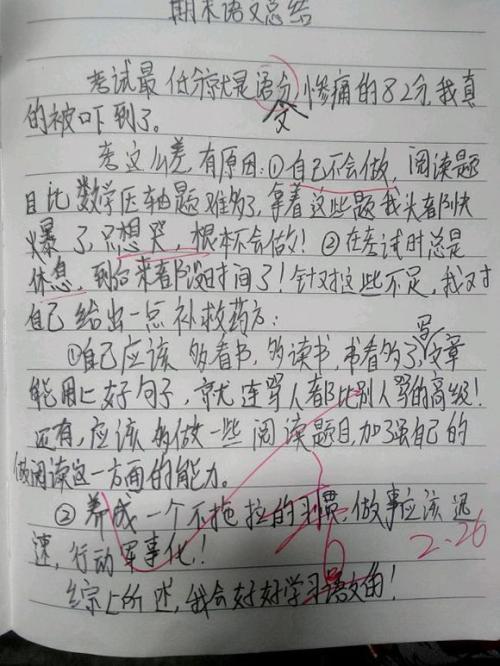 期末语文总结
考试最低分就是语文,惨痛的82分,我真
的被吓到了。
考这么差,有原因:①自己不会做,阅读题
目比数学压轴题难多了,拿着这些题我头都快
爆了,只想哭,根本不会做!②在考试时总是
休息,到后来都没时间了!针对这些不足,我对
自己给出一点补救药方:
①自己应该多看书,多读书,书看多了,写文章
能用上好句子,就连骂人都比别人骂的高级!
还有,应该多做一些阅读题目,加强自己的
做阅读这一方面的能力。
②养成一个不拖拉的习惯,做事应该迅
速,行动军事化!
2.26
综上所述,我会好好学习语文的!